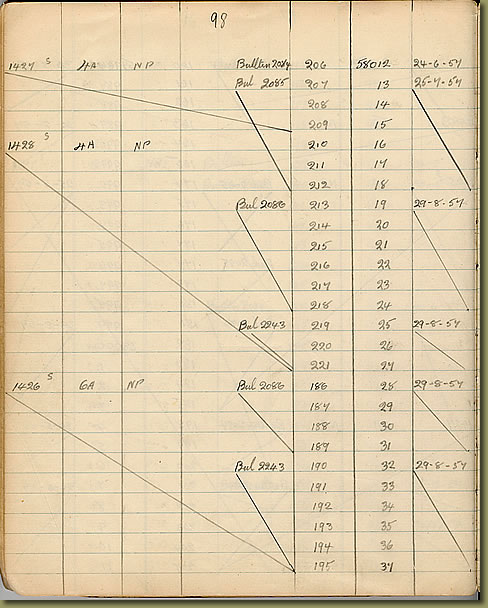 98
1427 S 4A NP Bulletin 2084 206 58012 24-6-57
Bul 2085 207 13 25-7-57
208 14
209 15
1428 S 4A NP 210 16
211 17
212 18
Bul 2086 213 19 29-8-57
214 20
215 21
216 22
217 23
218 24
Bul 2243 219 25 29-8-57
220 26
221 27
1426 S 6A NP Bul 2086 186 28 29-8-57
187 29
188 30
189 31
Bul 2243 190 32 29-8-57
191 33
192 34
193 35
194 36
195 37